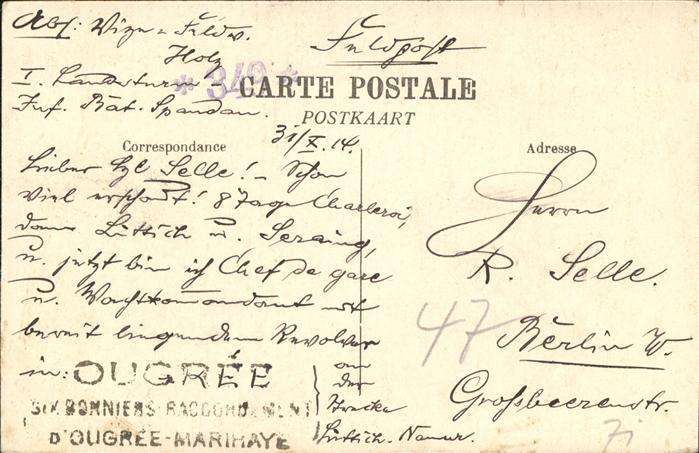 Abs: Vize u Feldw.
Holz
I. Landsturm-
Inf. Bat. Spandau.
Feldpost
* 349 *
CARTE POSTALE
POSTKAART
31/X. 14.
Correspondance
Lieber Selle! - Schon
viel erschaut! 8 Tage Charleroi,
dann Lüttich u. Seraing,
u. jetzt bin ich Chef de gare
u. Wachtkomandant mit
bereit liegendem Revolver
in: OUGRÉE
SIX BONNIERS-RACCORDEMENT
D'OUGRÉE-MARIHAYE
an
der
Strecke
Lüttich-Namur.
Adresse
Herrn
R. Selle.
47
Berlin W.
Grossbeerenstr.
71